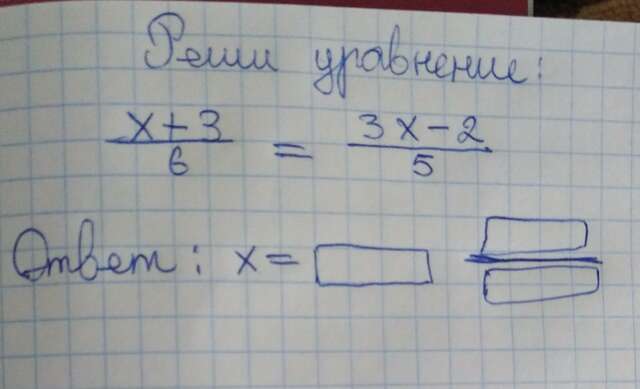 Реши уравнение:
x+3/6 = 3x-2/5
Ответ: x=